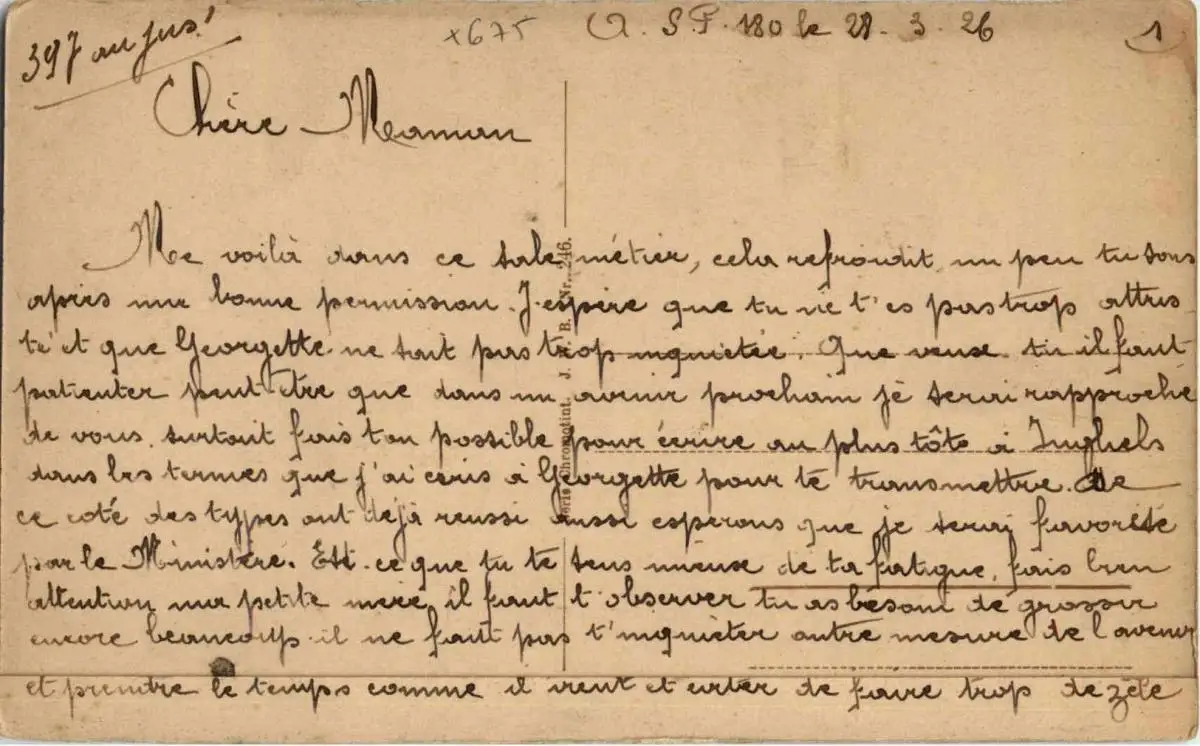 397 au jus!
x675
S.P. 180 le 28. 3. 26
1
Chère Maman
Me voilà dans ce sale métier, cela refroidit un peu tu sais
après une bonne permission. J'espère que tu ne t'es pas trop attris
té et que Georgette ne soit pas trop inquiétée. Que veux tu il faut
patienter peut-être que dans un avenir prochain je serai rapproché
de vous. surtout fais ton possible pour écrire au plus tôt à Inghels
dans les termes que j'ai écris à Georgette pour te transmettre. De
ce coté des types ont déjà reussi aussi esperons que je serai favorisé
par le Ministère. Est-ce que tu te sens mieux de ta fatigue, fais bien
attention ma petite mère, il faut t'observer tu as besoin de grossir
encore beaucoup. il ne faut pas t'inquièter outre mesure de l'avenir
et prendre le temps comme il vient et eviter de faire trop de zèle
Paris Chromotint. J. B. Nr. 246.